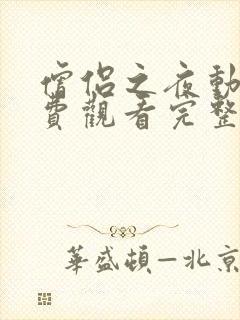 僧侶之夜動
費觀看完整
華盛頓—北京